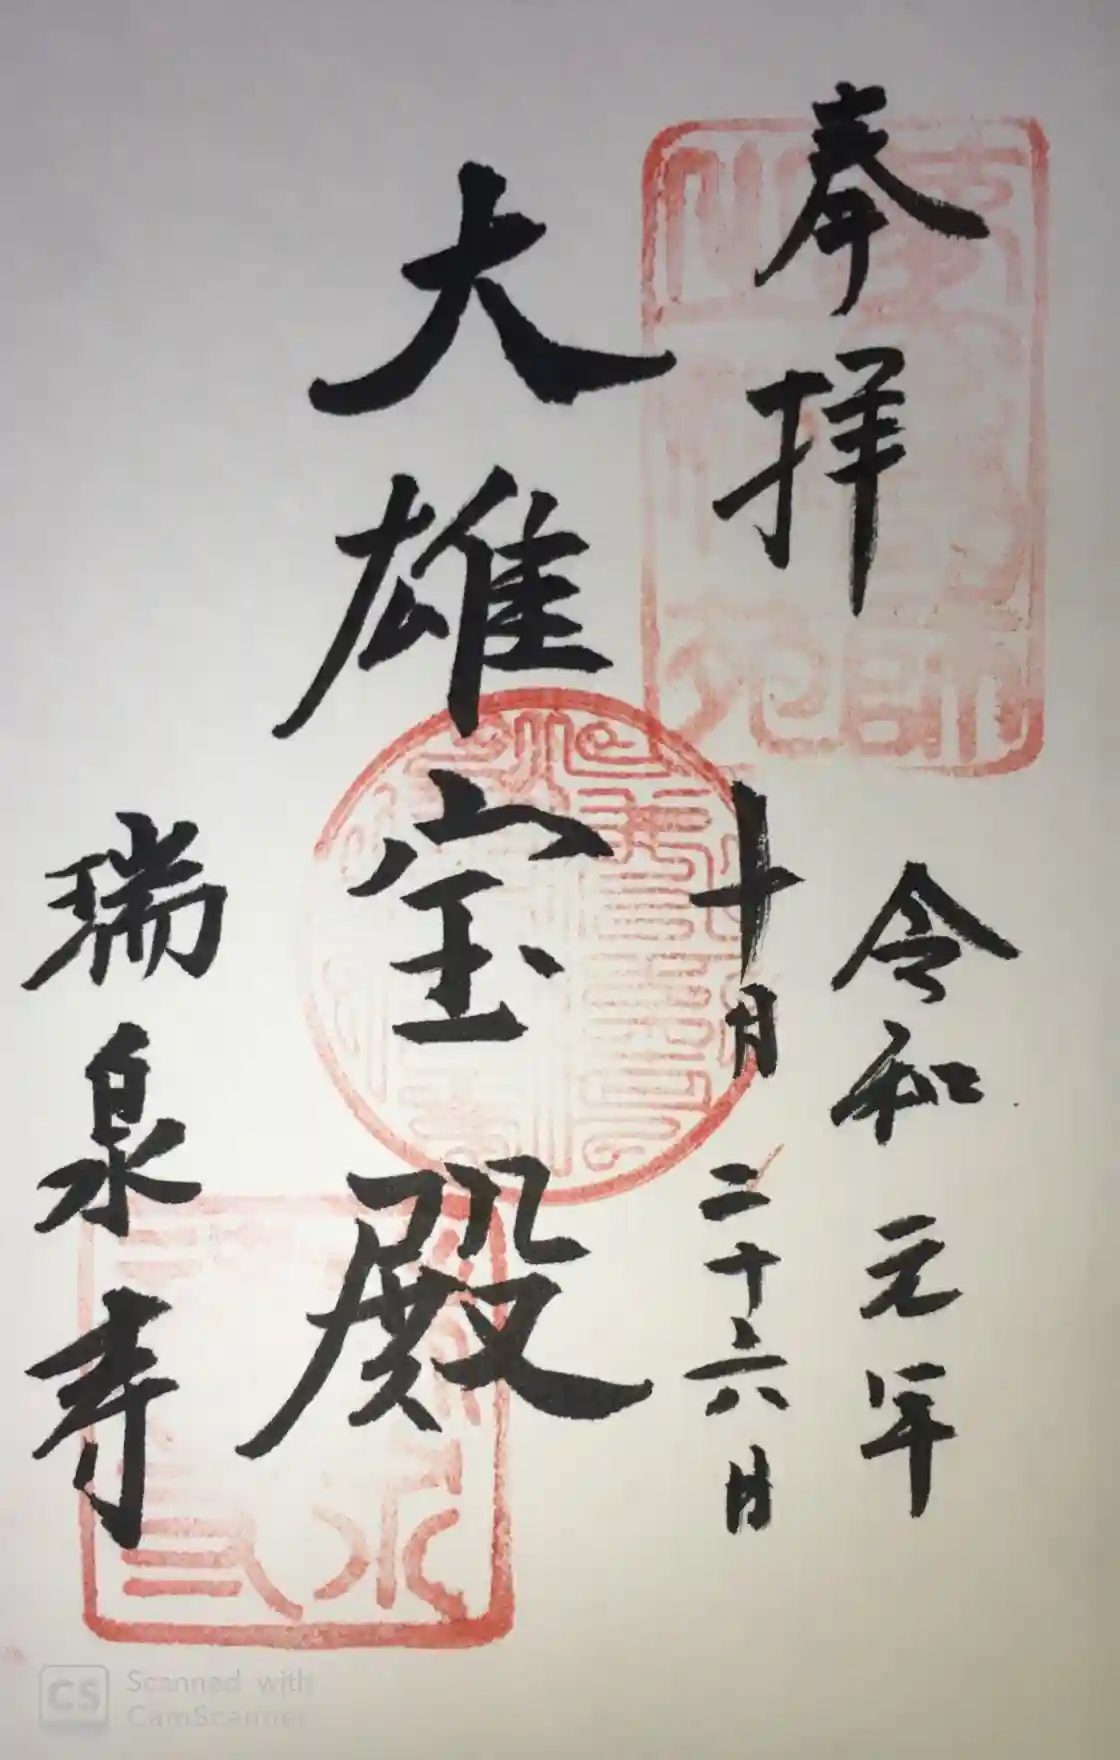 奉拝
令和元年
十月二十六日
大雄宝殿
瑞泉寺
CS Scanned with
CamScanner